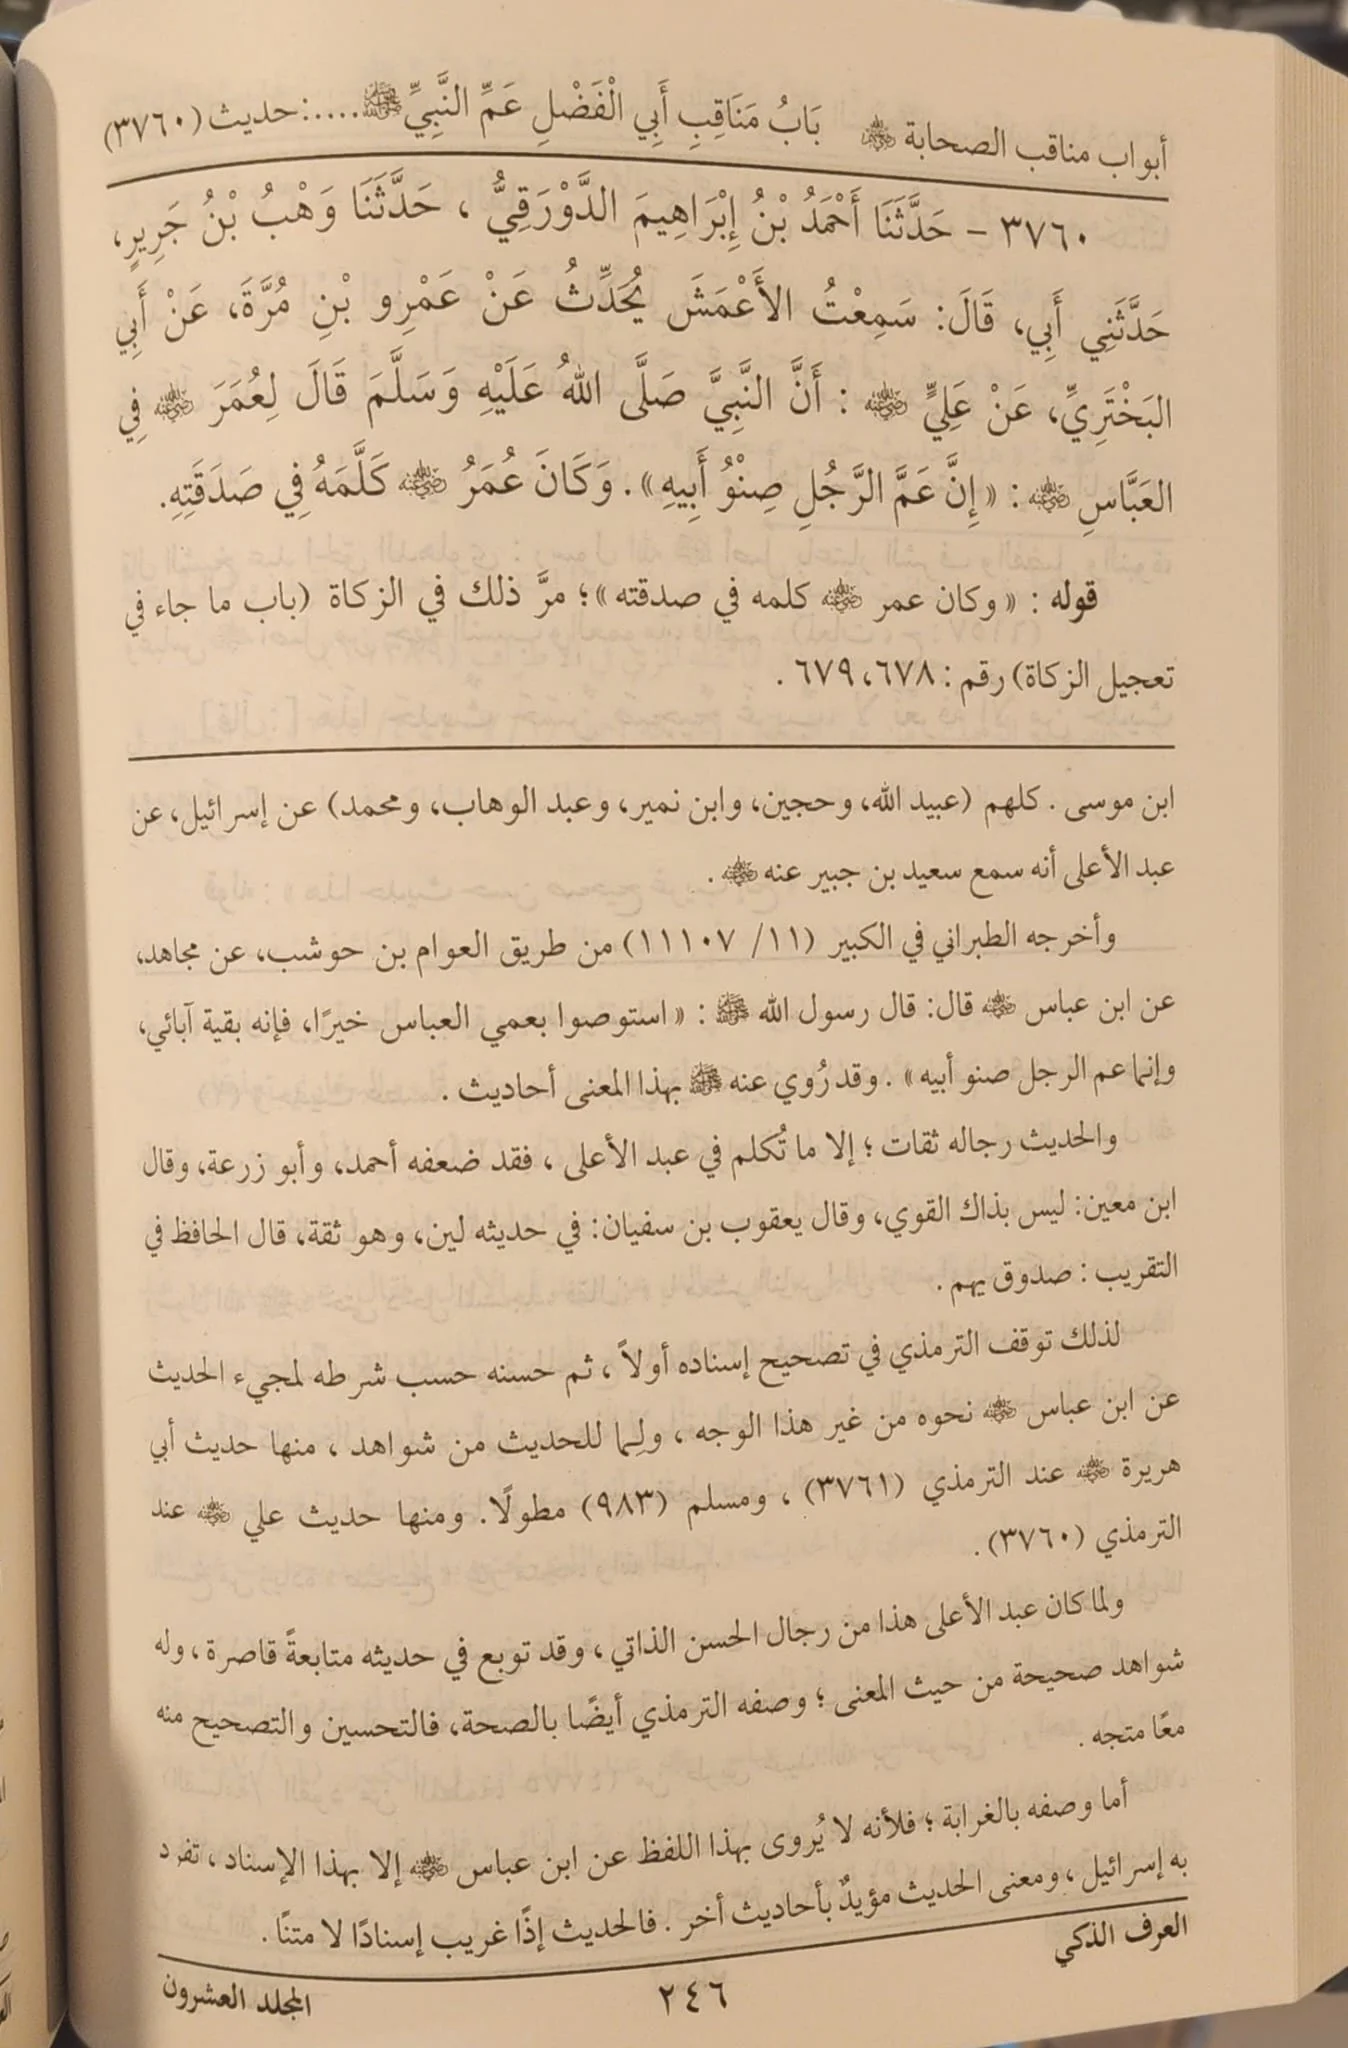 أبواب مناقب الصحابة ﷺ بَابُ مَنَاقِبِ أَبِي الْفَضْلِ عَمِّ النَّبِيِّ ﷺ.....: حديث (٣٧٦٠)
٣٧٦٠ - حَدَّثَنَا أَحْمَدُ بْنُ إِبْرَاهِيمَ الدَّوْرَقِيُّ ، حَدَّثَنَا وَهْبُ بْنُ جَرِيرٍ،
حَدَّثَنِي أَبِي، قَالَ: سَمِعْتُ الأَعْمَشَ يُحَدِّثُ عَنْ عَمْرِو بْنِ مُرَّةَ، عَنْ أَبِي
البَخْتَرِيِّ، عَنْ عَلِيٍّ ﵁ : أَنَّ النَّبِيَّ صَلَّى اللهُ عَلَيْهِ وَسَلَّمَ قَالَ لِعُمَرَ ﵁ فِي
العَبَّاسِ ﵁ : «إِنَّ عَمَّ الرَّجُلِ صِنْوُ أَبِيهِ» . وَكَانَ عُمَرُ ﵁ كَلَّمَهُ فِي صَدَقَتِهِ.
قوله : «وكان عمر ﵁ كلمه في صدقته»؛ مرَّ ذلك في الزكاة (باب ما جاء في
تعجيل الزكاة) رقم : ٦٧٨، ٦٧٩ .
ابن موسى . كلهم (عبيد الله، وحجين، وابن نمير، وعبد الوهاب، ومحمد) عن إسرائيل، عن
عبد الأعلى أنه سمع سعيد بن جبير عنه ﵁ .
وأخرجه الطبراني في الكبير (١١/ ١١١٠٧) من طريق العوام بن حوشب، عن مجاهد،
عن ابن عباس ﵁ قال: قال رسول الله ﷺ : «استوصوا بعمي العباس خيرًا، فإنه بقية آبائي،
وإنما عم الرجل صنو أبيه» . وقد رُوي عنه ﷺ بهذا المعنى أحاديث .
والحديث رجاله ثقات ؛ إلا ما تُكلم في عبد الأعلى ، فقد ضعفه أحمد، وأبو زرعة، وقال
ابن معين: ليس بذاك القوي، وقال يعقوب بن سفيان: في حديثه لين، وهو ثقة، قال الحافظ في
التقريب : صدوق يهم .
لذلك توقف الترمذي في تصحيح إسناده أولاً ، ثم حسنه حسب شرطه لمجيء الحديث
عن ابن عباس ﵁ نحوه من غير هذا الوجه ، ولِما للحديث من شواهد ، منها حديث أبي
هريرة ﵁ عند الترمذي (٣٧٦١) ، ومسلم (٩٨٣) مطولًا. ومنها حديث علي ﵁ عند
الترمذي (٣٧٦٠).
ولما كان عبد الأعلى هذا من رجال الحسن الذاتي ، وقد توبع في حديثه متابعةً قاصرة ، وله
شواهد صحيحة من حيث المعنى ؛ وصفه الترمذي أيضًا بالصحة، فالتحسين والتصحيح منه
معًا متجه .
أما وصفه بالغرابة ؛ فلأنه لا يُروى بهذا اللفظ عن ابن عباس ﵁ إلا بهذا الإسناد ، تفرد
به إسرائيل ، ومعنى الحديث مؤيدٌ بأحاديث أخر . فالحديث إذًا غريب إسنادًا لا متنًا .
العرف الذكي ٢٤٦ المجلد العشرون